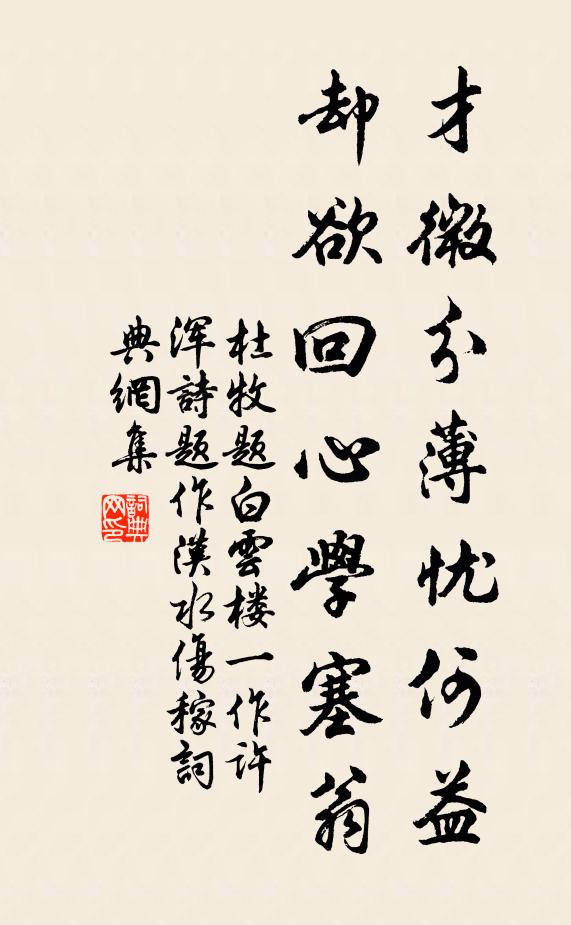 才微分薄忧何益
却欲回心學塞翁
杜牧题白雲楼一作许
浑詩题作漢水傷稼詞
典網集
詞典网印